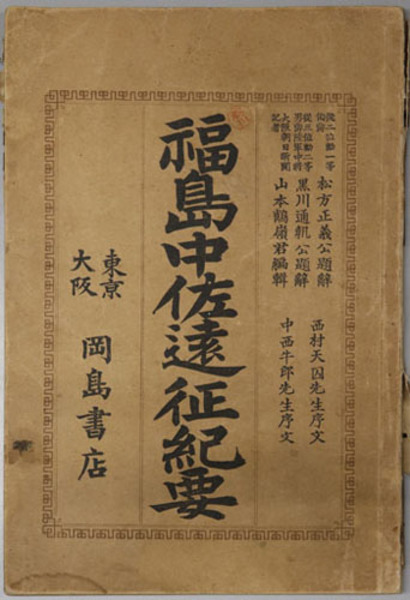 從二位勳一等
伯爵
松方正義公題辭
西村天囚先生序文
從三位勳二等
男爵陸軍中將
黒川通軌公題辭
中西牛郎先生序文
大阪朝日新聞
記者
山本鶴嶺君編輯
福島中佐遠征紀要
東京
大阪
岡島書店